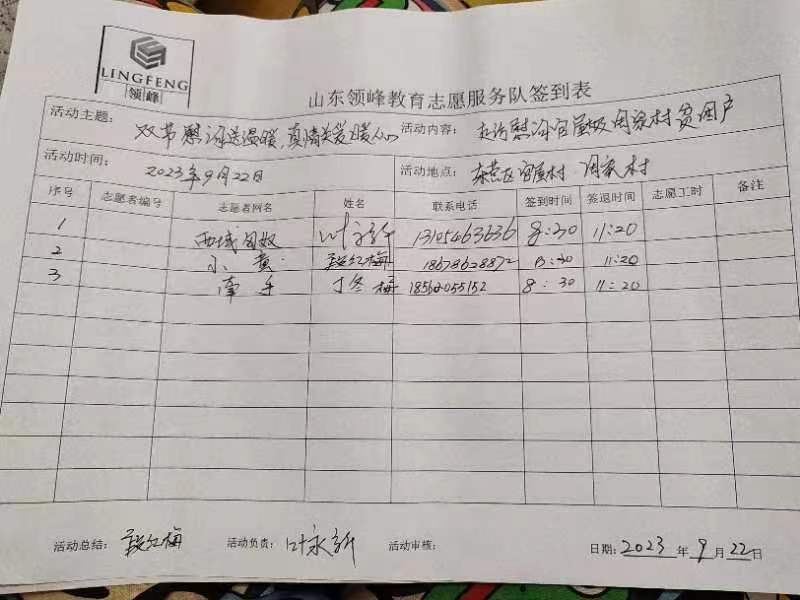 LINGFENG
领峰
山东领峰教育志愿服务队签到表
活动主题: 双节慰问送温暖,真情关爱暖人心 活动内容: 走访慰问官屋级周家村贫困户
活动时间: 2023年9月22日 活动地点: 东营区官屋村 周家村
序号 志愿者编号 志愿者网名 姓名 联系电话 签到时间 签退时间 志愿工时 备注
1 西域匈奴 叶永新 13105463636 8:30 11:20
2 小黄 段红梅 18678628872 8:30 11:20
3 牵手 丁冬梅 18562055152 8:30 11:20
活动总结: 段红梅 活动负责: 叶永新 活动审核: 日期: 2023 年 9 月 22 日